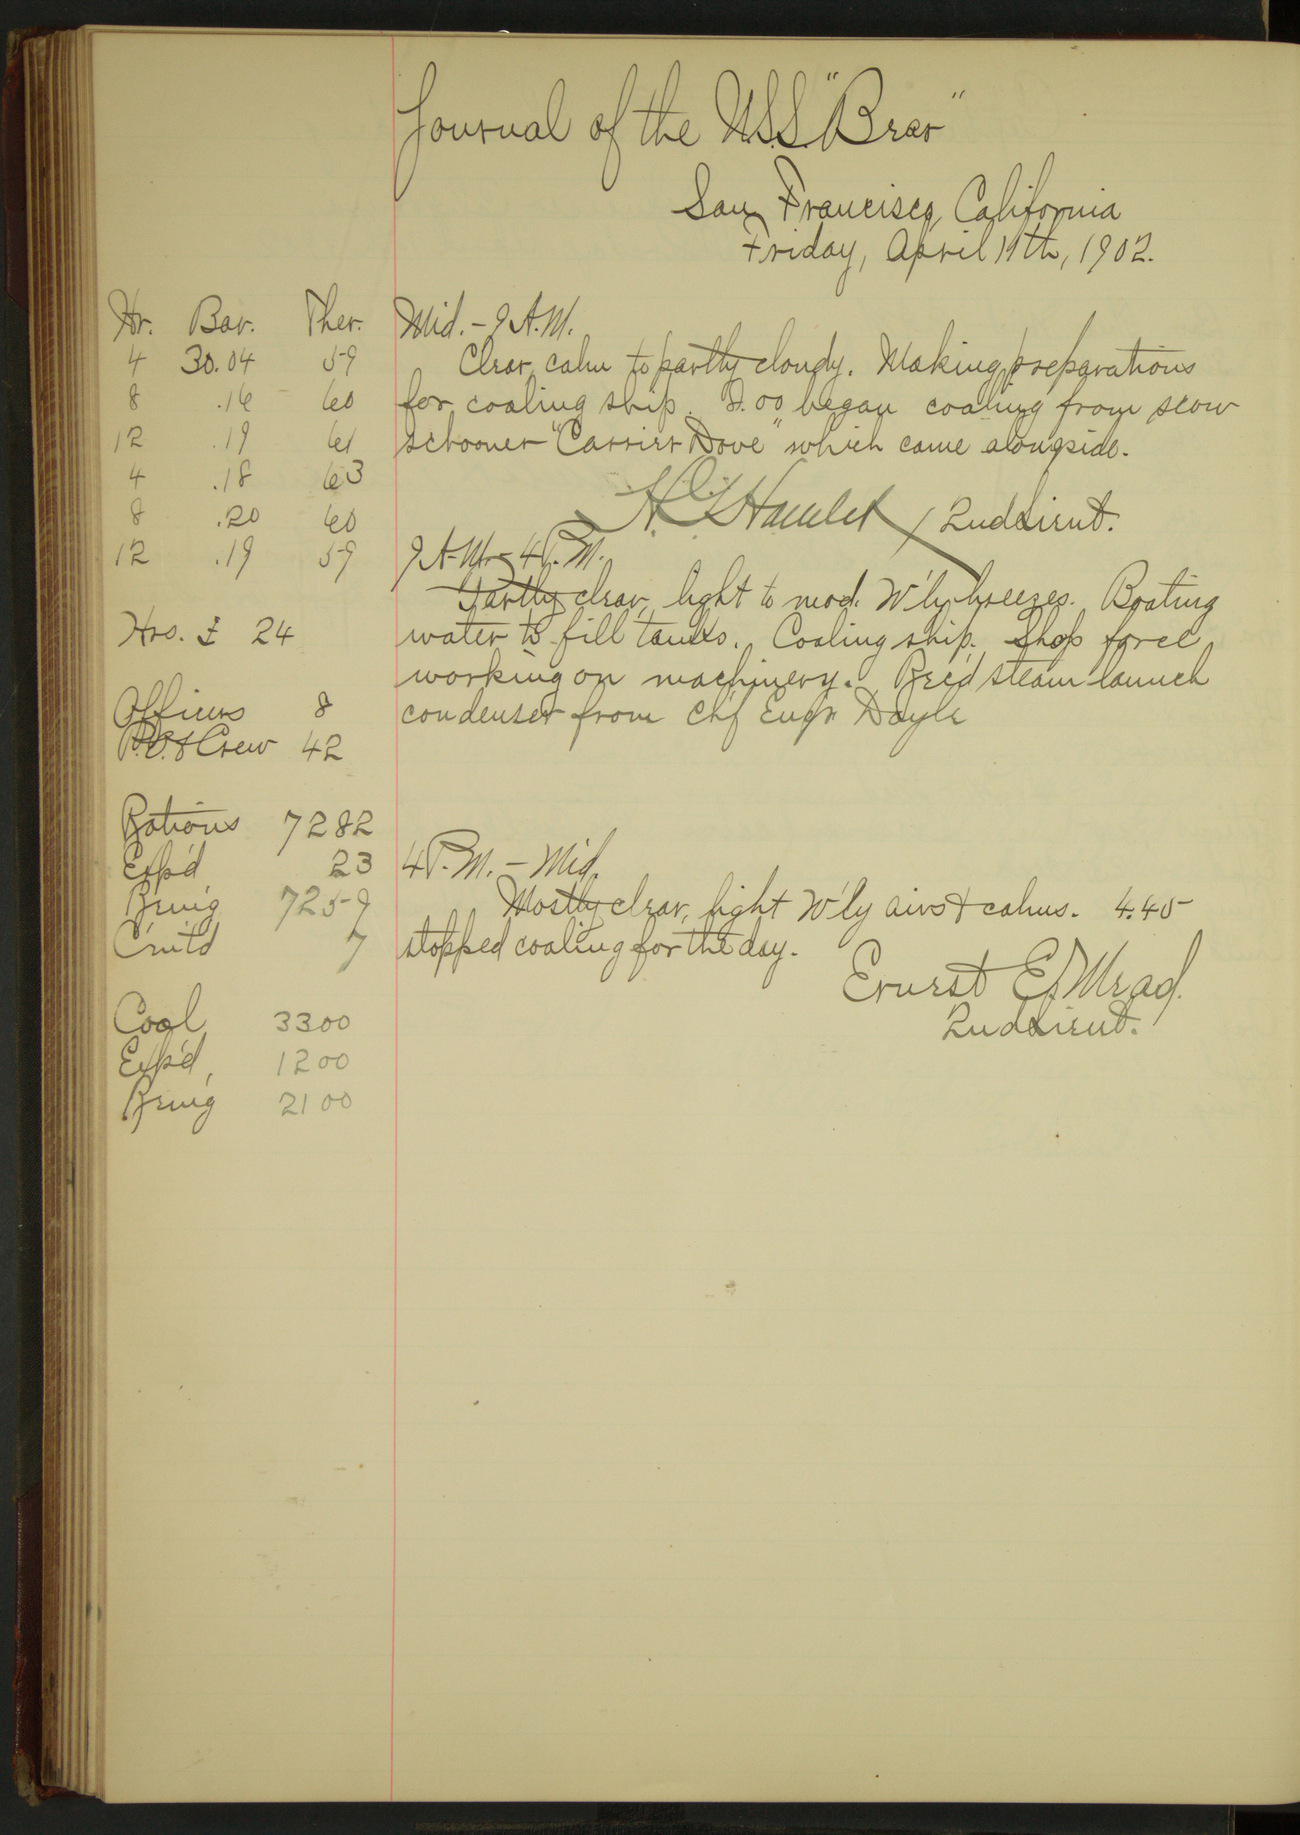 Journal of the U.S.S. "Bear"
San Francisco, California
Friday, April 11th, 1902.
Hr. Bar. Ther.
4 30.04 59
8 .16 60
12 .19 61
4 .18 63
8 .20 60
12 .19 59
Hrs. 24
Officers 8
P.O. & Crew 42
Rations 7282
Exp'd 23
Rem'g 7259
Com'td 7
Coal 3300
Exp'd, 1200
Rem'g 2100
Mid. - 9 A.M.
Clear, calm to partly cloudy. Making preparations
for coaling ship. 8.00 began coaling from scow
schooner "Carrier Dove" which came alongside.
H G Hamlet, 2nd Lieut.
9 A.M. - 4 P.M.
Partly clear, light to mod. W'ly breezes. Boating
water to fill tanks. Coaling ship. Shop force
working on machinery. Rec'd steam launch
condenser from Ch'f Eng'r Doyle
4 P.M. - Mid.
Mostly clear, light W'ly airs & calms. 4.45
stopped coaling for the day.
Ernest E. Mead.
2nd Lieut.